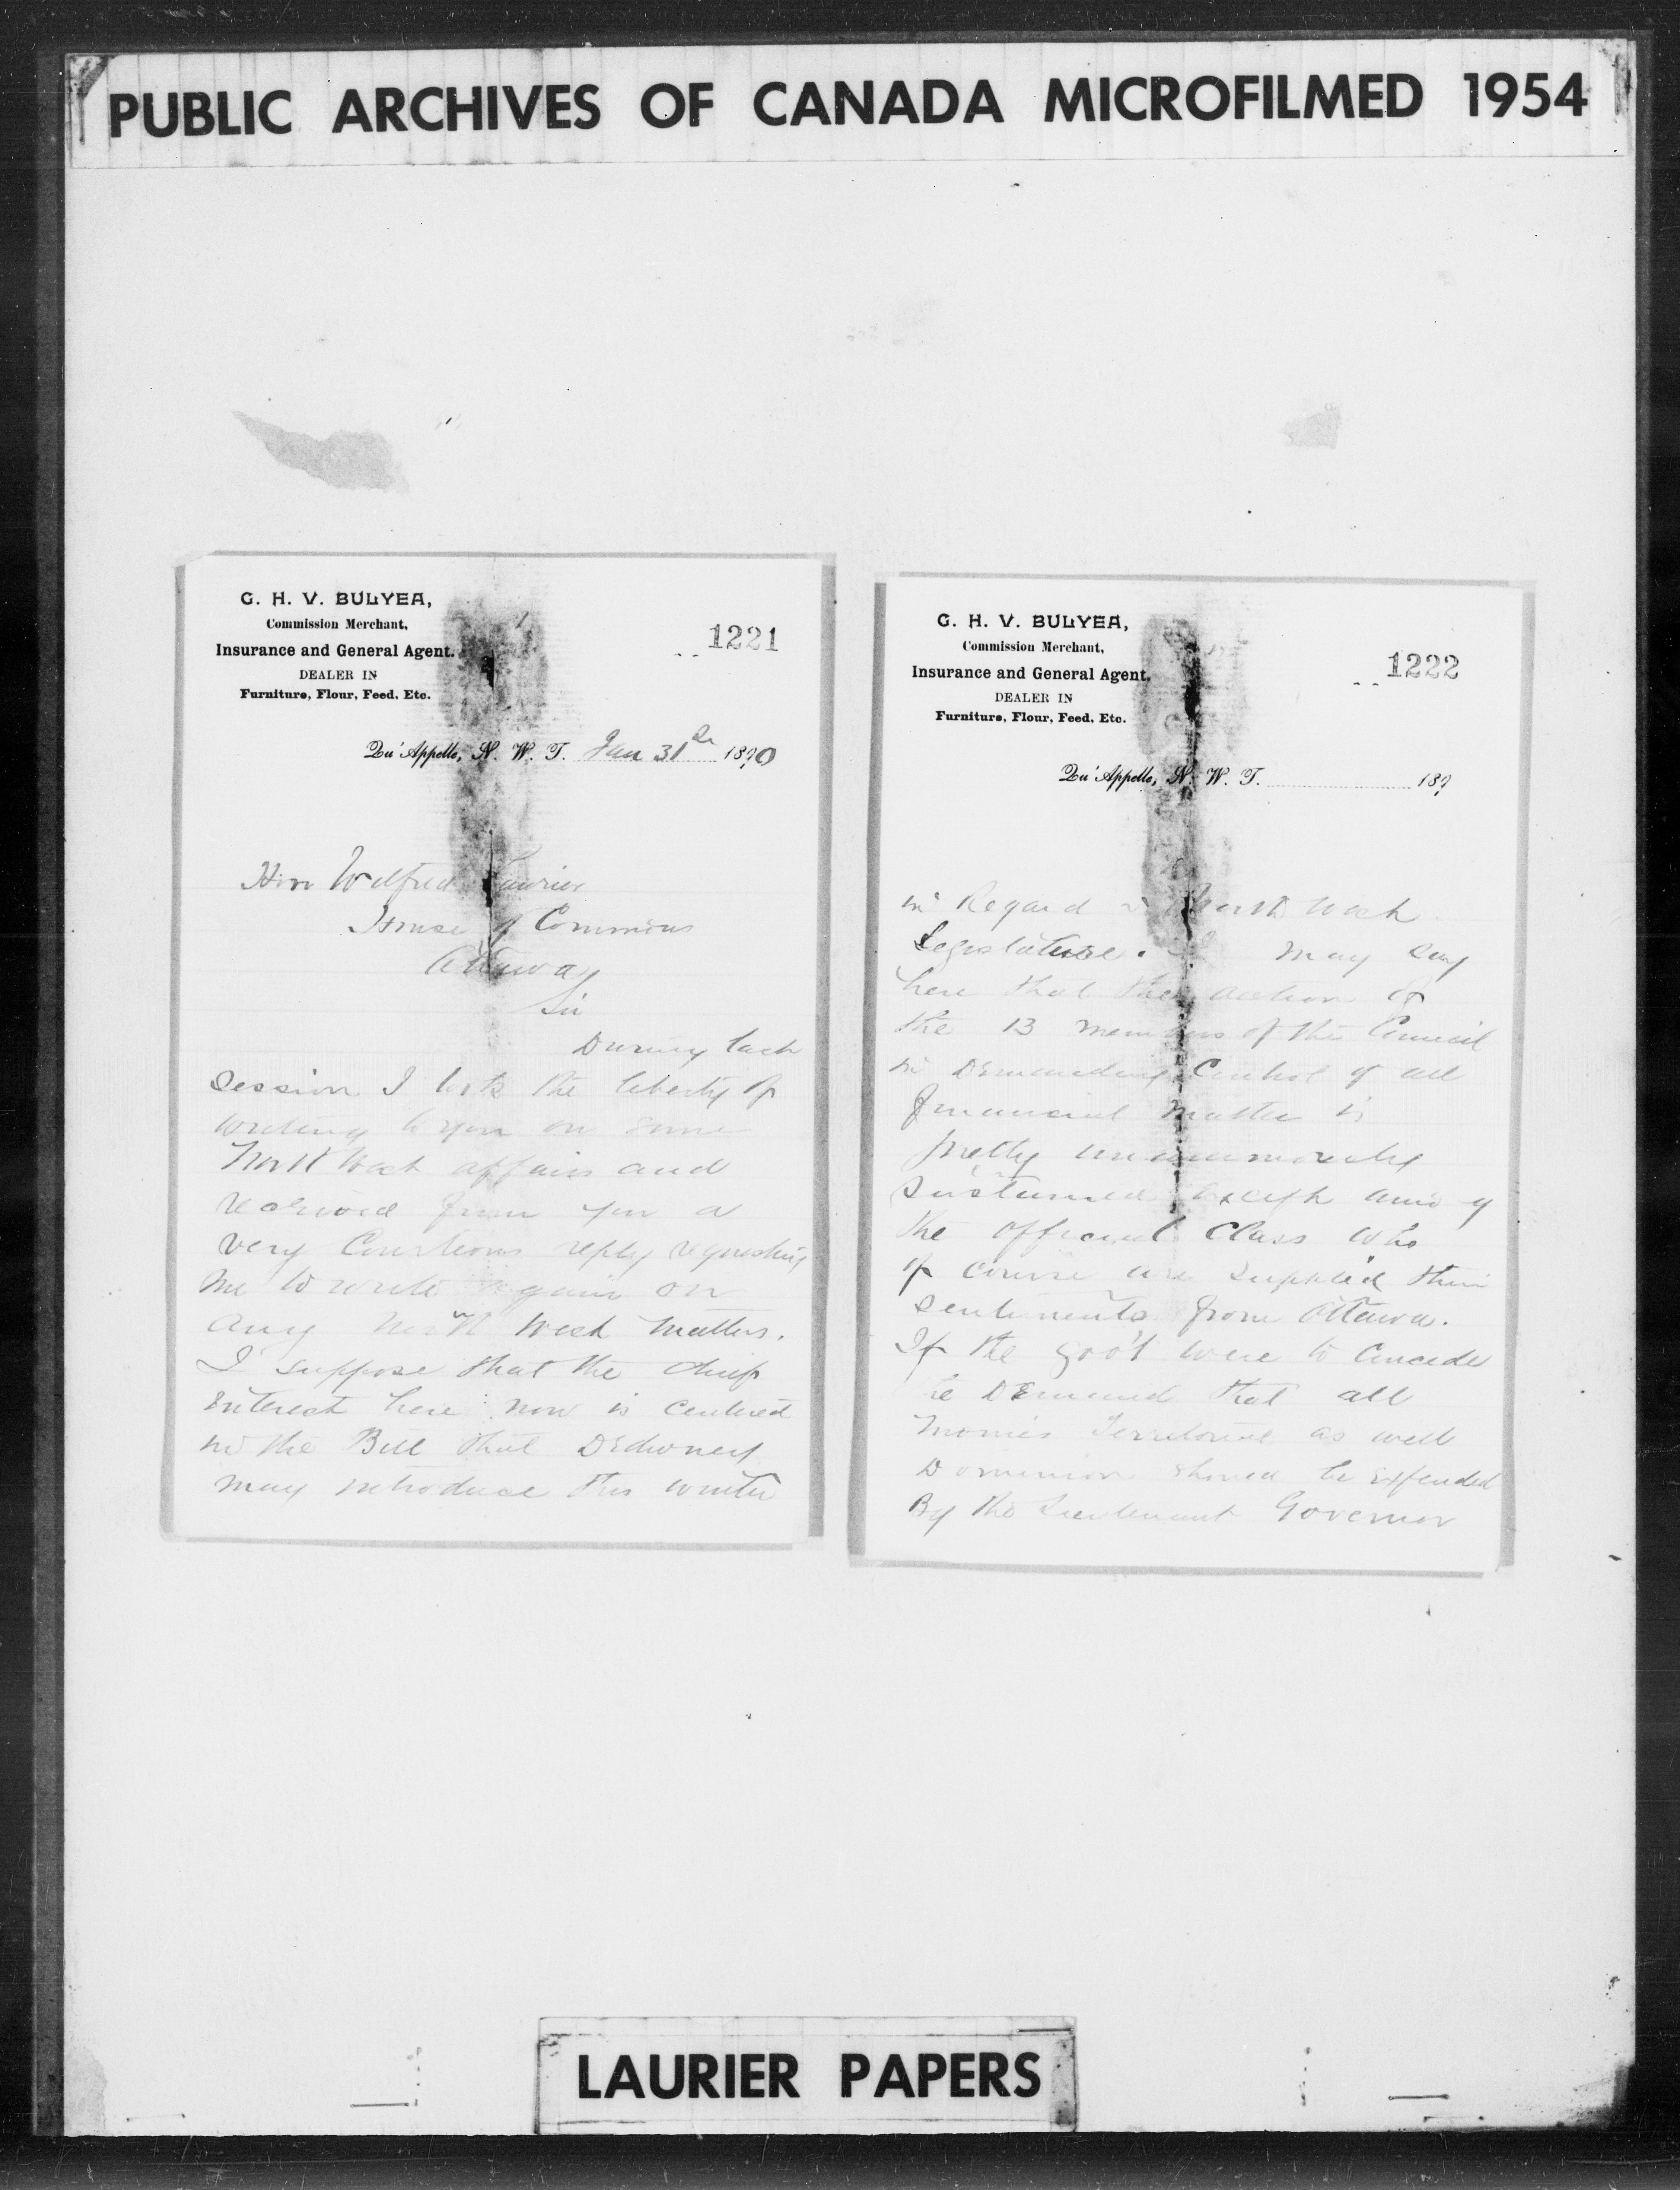 PUBLIC ARCHIVES OF CANADA MICROFILMED 1954
G. H. V. BULYEA,
Commission Merchant,
Insurance and General Agent.
DEALER IN
Furniture, Flour, Feed, Etc.
1221
Qu'Appelle, N. W. T. Jan 31st 1890
Hon Wilfred Laurier
House of Commons
Ottawa
Sir
During last
session I took the liberty of
writing to you on some
North West affairs and
received from you a
very Courteous reply requesting
me to write again on
any North West matters.
I suppose that the chief
interest here now is centered
in the Bill that Dewdney
may introduce this winter
G. H. V. BULYEA,
Commission Merchant,
Insurance and General Agent.
DEALER IN
Furniture, Flour, Feed, Etc.
1222
Qu'Appelle, N. W. T. 189
in Regard to North West
Legislature. I may say
here that the action of
the 13 members of the Council
in Demanding Control of all
financial matter is
pretty unanimously
sustained except among
the official Class who
of course are supplied their
sentiments from Ottawa.
If the Gov't were to concede
the Demand that all
monies Territorial as well
Dominion should be expended
By the Lieutenant Governor
LAURIER PAPERS